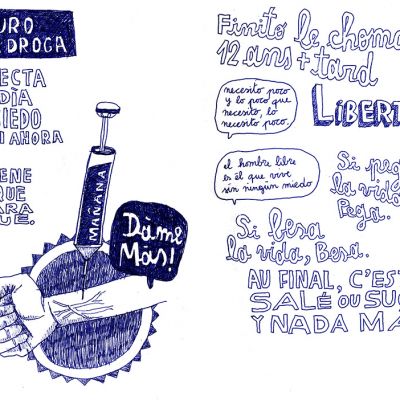 URO
DROGA
ECTA
DÌA
IEDO
I AHORA
ENE
QUE
ARA
UÉ.
MAÑANA
Dàme
Màs!
Finito le choma
12 ans + tard
LIBERT
necesito poco
y lo poco que
necesito, lo
necesito poco.
el hombre libre
es él que vive
sin ningún miedo
Si pega
la vida,
Pega.
Si besa
la vida, Besa.
AU FINAL, C'EST
SALÉ OU SUC
Y NADA MÁ